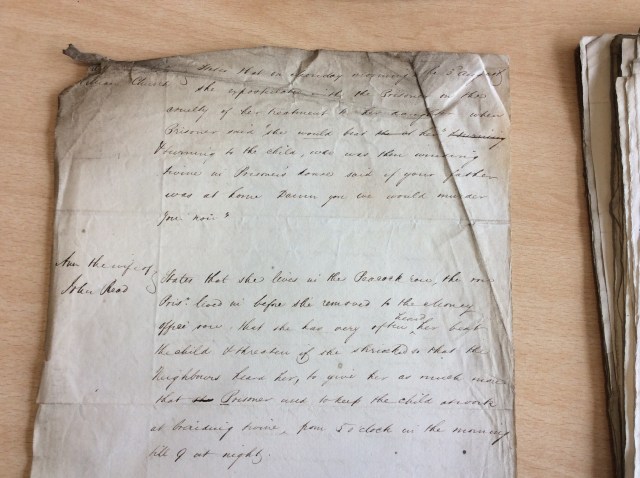 States that on Monday morning the 5 August
she expostulated with the Prisoner on the
cruelty of her treatment to her daughter when
Prisoner said "she would beat her"
& turning to the child, who was then winding
twine in Prisoner's house said if your father
was at home Damn you we would murder
you now"
Ann the wife of
John Read
States that she lives in the Peacock row, the row
Pris.r lived in before she removed to the Money
office row. that she has very often heard her beat
the child & threaten if she shrieked so that the
Neighbours heard her, to give her as much more
that Prisoner used to keep the child at work
at braiding twine, from 5 o'clock in the morning
till 9 at night.